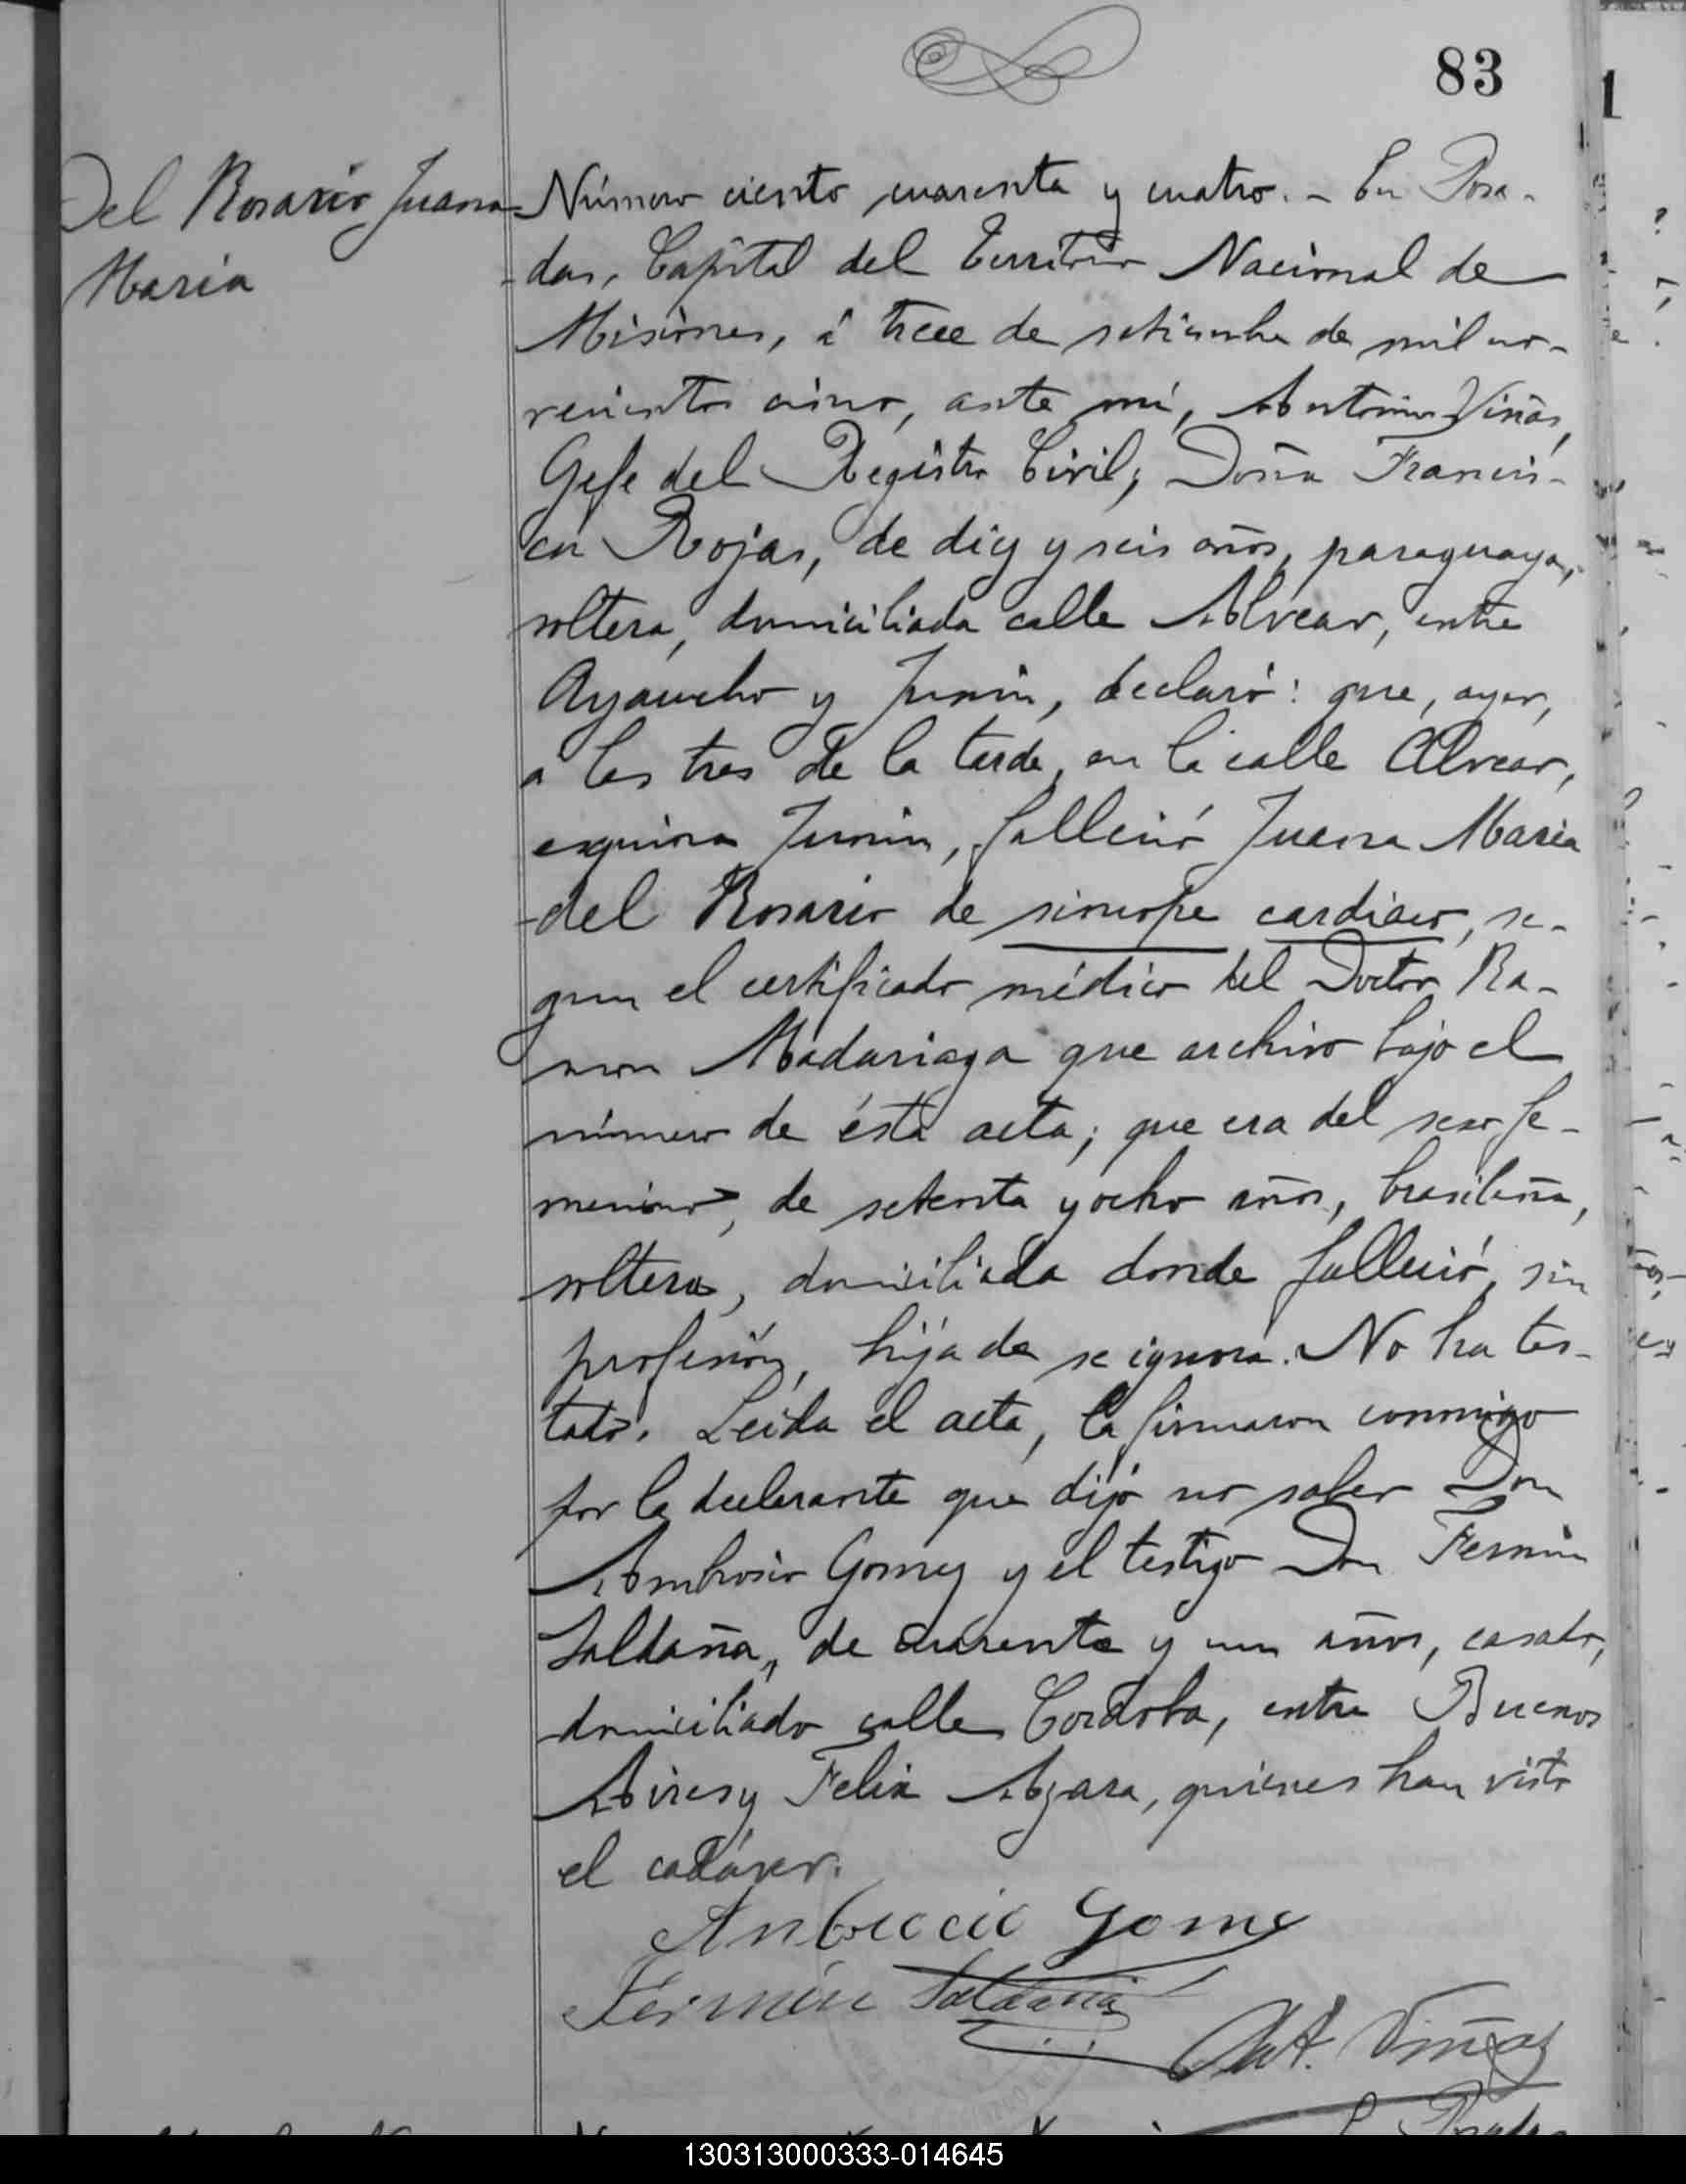 83
Del Rosario Juana
Maria
Número ciento cuarenta y cuatro. - En Posa-
-das, Capital del Territorio Nacional de
Misiones, á trece de setiembre de mil no-
vecientos cinco, ante mí, Antonio Viñas,
Gefe del Registro Civil, Doña Francis-
ca Rojas, de diez y seis años, paraguaya,
soltera, domiciliada calle Alvear, entre
Ayacucho y Junin, declaró: que, ayer,
a las tres de la tarde, en la calle Alvear,
esquina Junin, falleció Juana Maria
del Rosario de sincope cardiaco, se-
gun el certificado médico del Doctor Ra-
mon Madariaga que archivo bajo el
número de ésta acta; que era del sexo fe-
menino, de setenta y ocho años, brasileña,
soltera, domiciliada donde falleció, sin
profesión, hija de se ignora. No ha tes-
tado. Leida el acta, la firmaron conmigo
por la declarante que dijó no saber Don
Ambrosio Gomez y el testigo Don Fermin
Saldaña, de cuarenta y un años, casado,
domiciliado calle Cordoba, entre Buenos
Aires y Felix Azara, quienes han visto
el cadáver.
Gome
Fermin Saldaña
Ant. Viñas
130313000333-014645